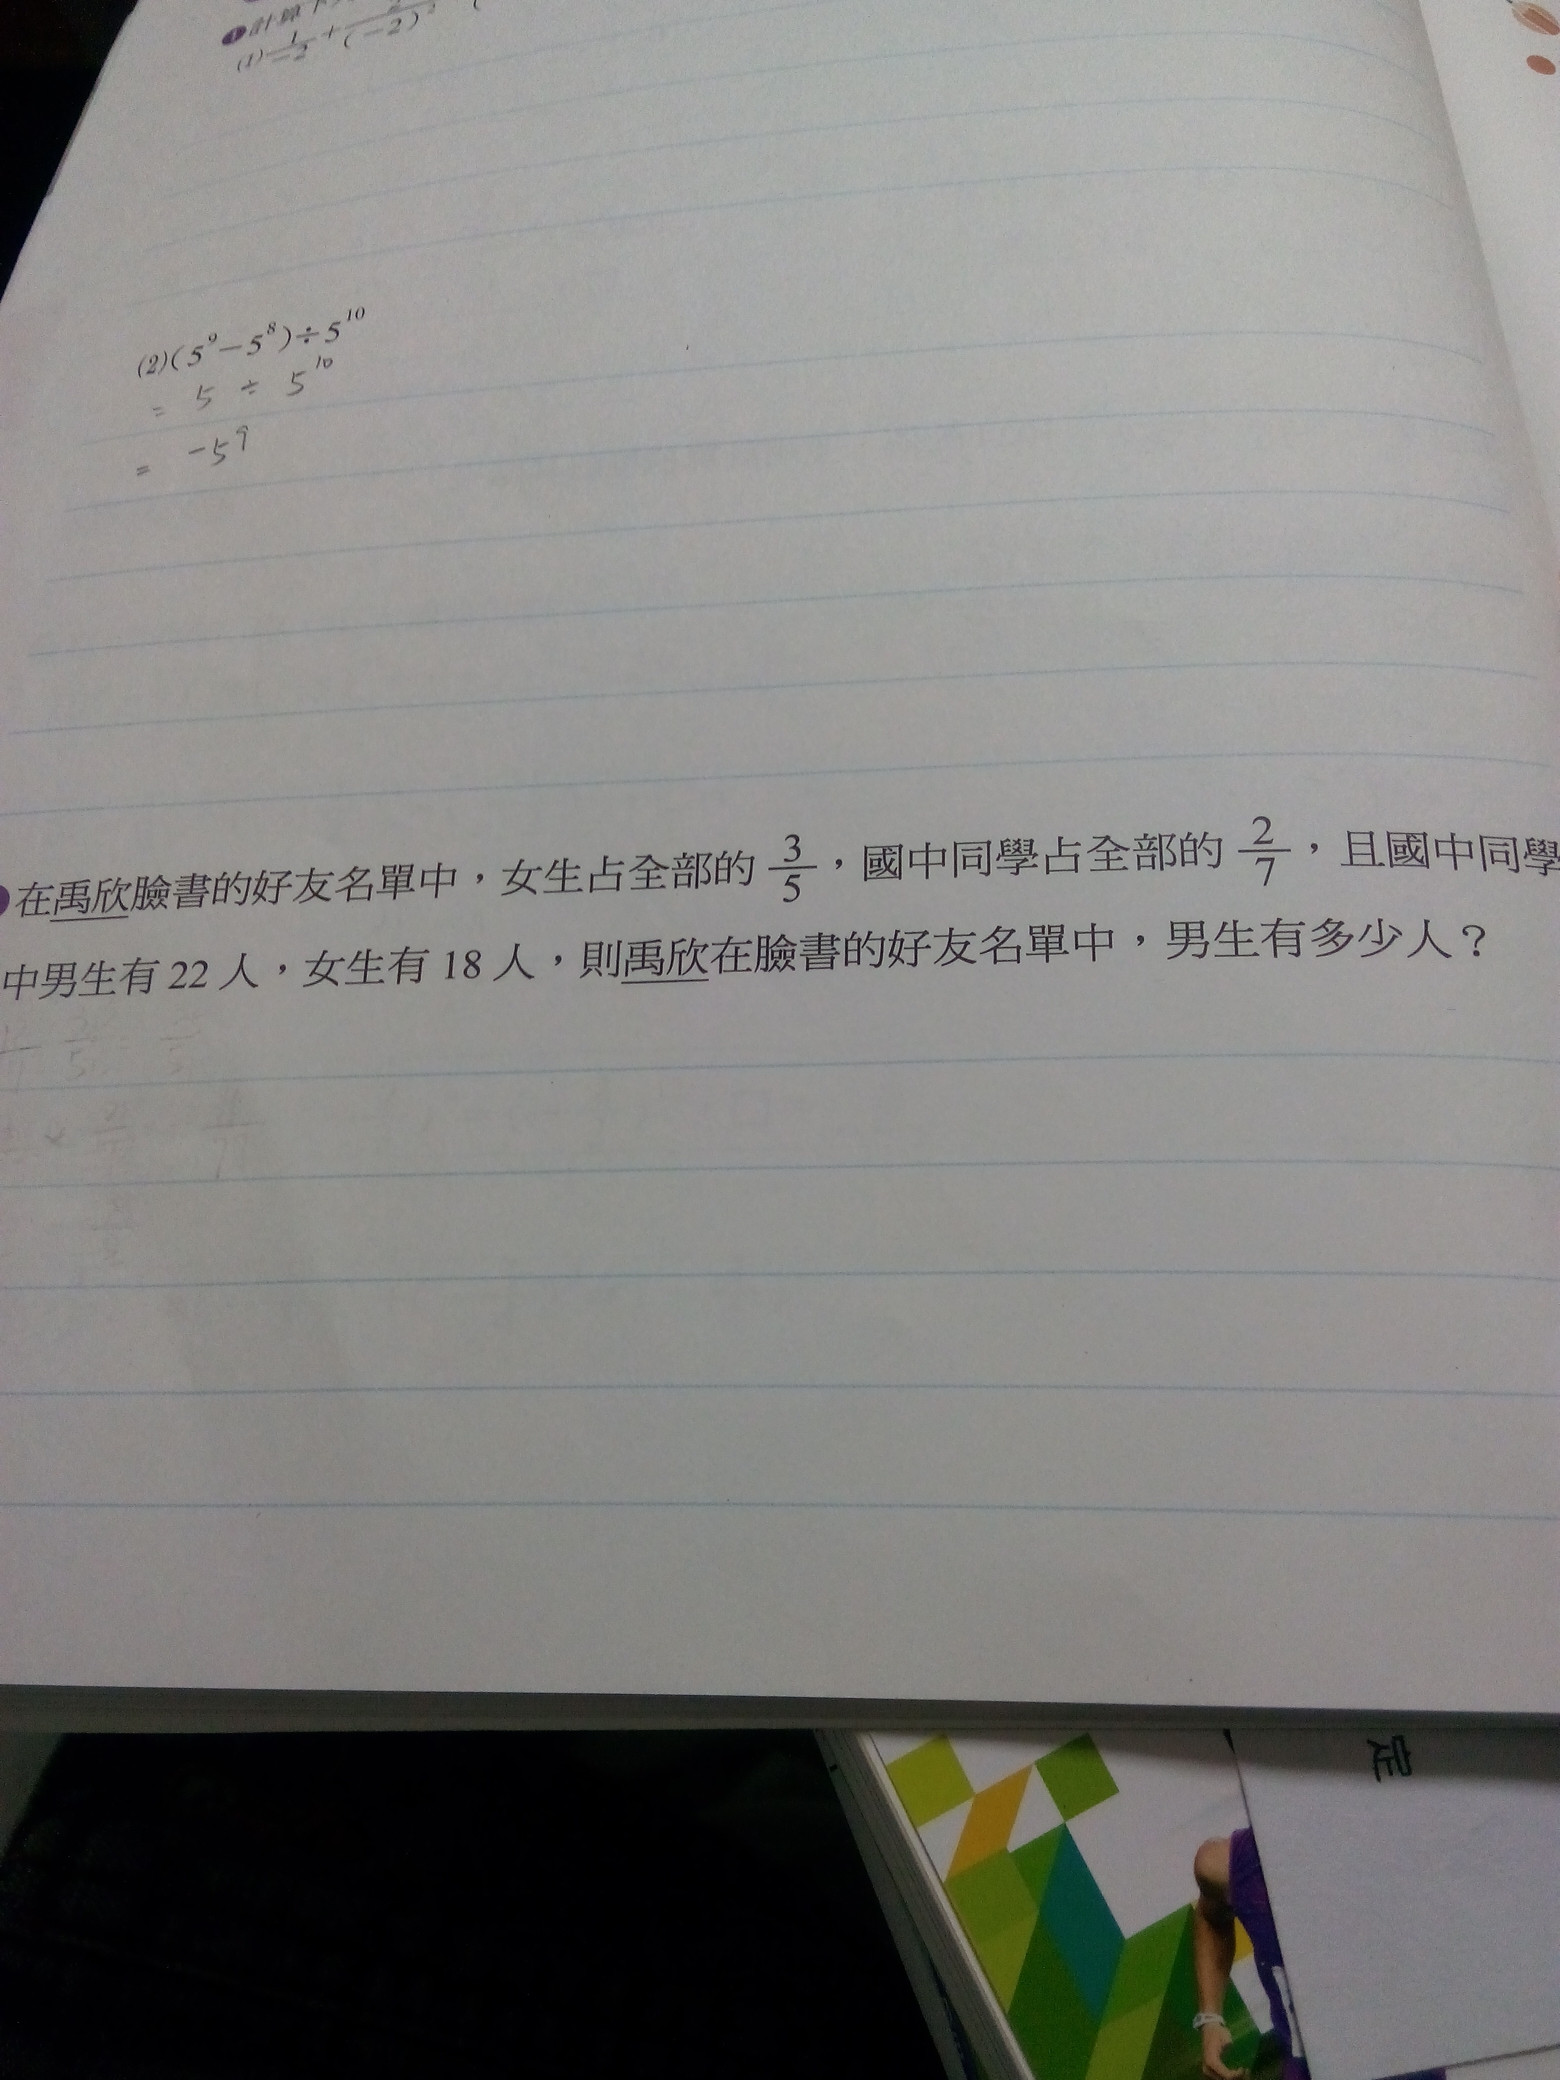 ❶計算下
(1) \frac{1}{-2} + \frac{2}{(-2)^2} (
(2)(5⁹－5⁸)÷5¹⁰
= 5 ÷ 5¹⁰
= -5⁹
在禹欣臉書的好友名單中，女生占全部的 \frac{3}{5}，國中同學占全部的 \frac{2}{7}，且國中同學
中男生有 22 人，女生有 18 人，則禹欣在臉書的好友名單中，男生有多少人？
定